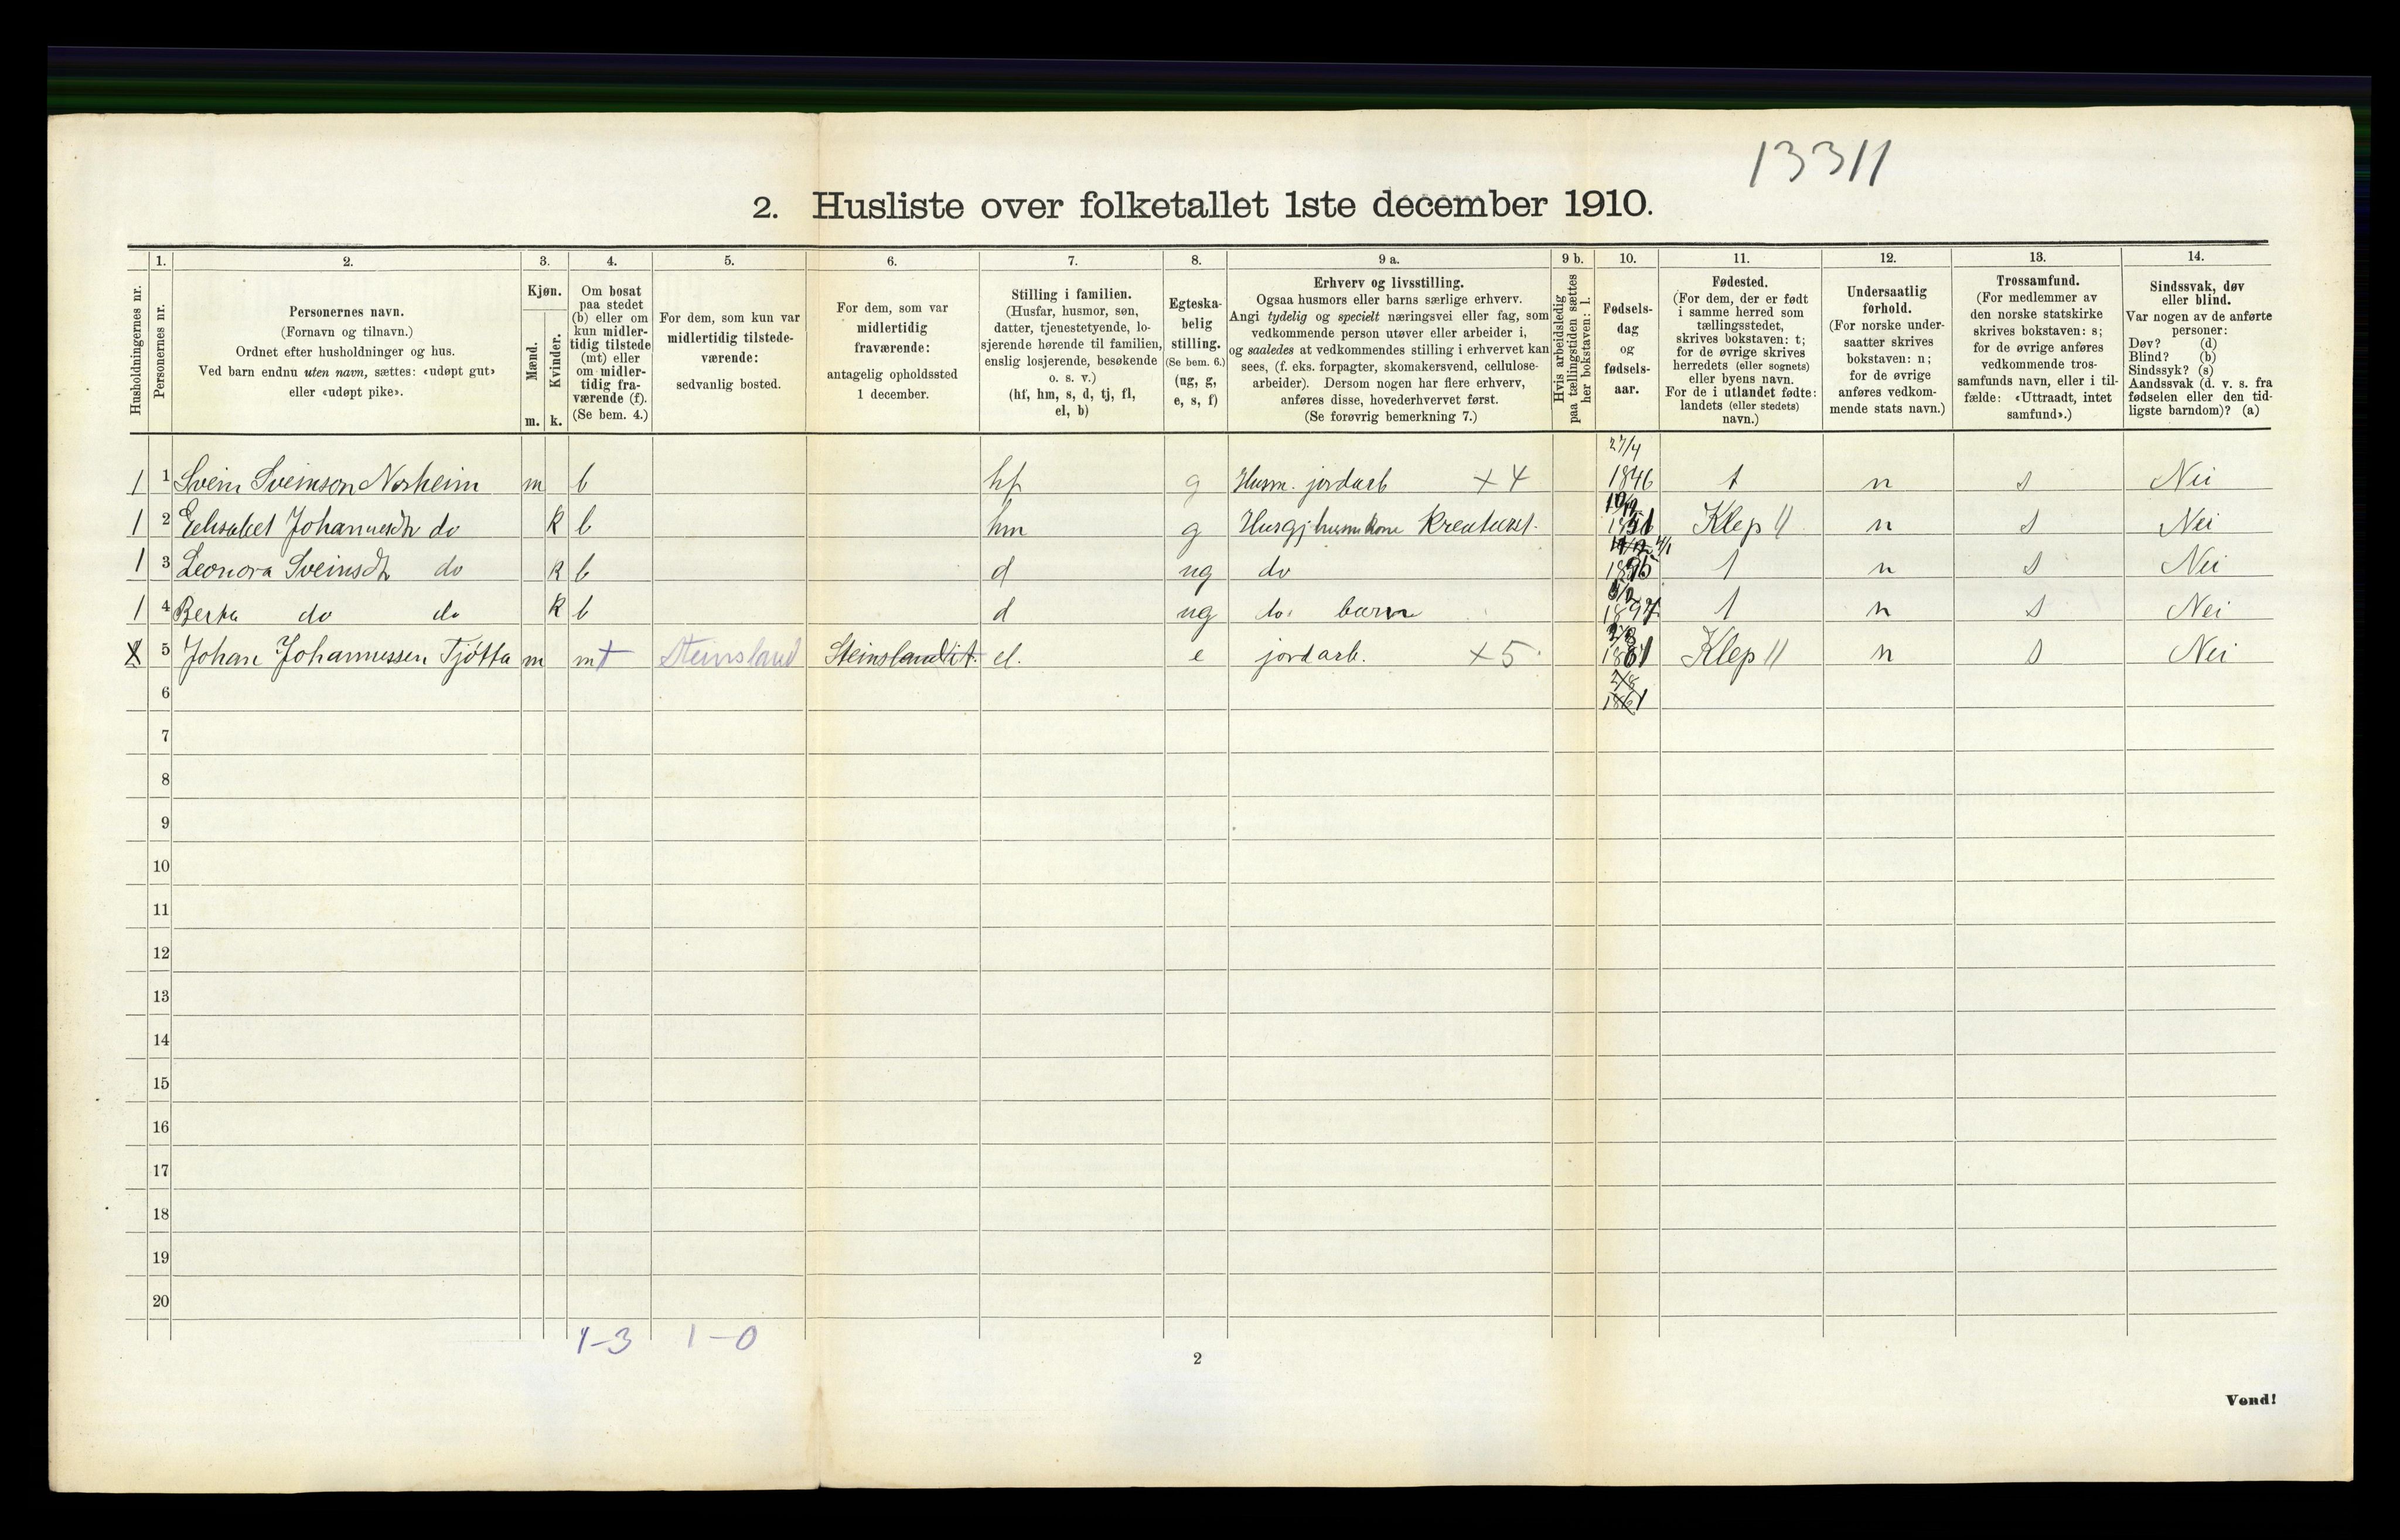 13311
2. Husliste over folketallet 1ste december 1910.
Husholdningernes nr.
1. Personernes nr.
2. Personernes navn.
(Fornavn og tilnavn.)
Ordnet efter husholdninger og hus.
Ved barn endnu uten navn, sættes: «udøpt gut»
eller «udøpt pike».
3. Kjøn.
Mænd. m.
Kvinder. k.
4. Om bosat
paa stedet
(b) eller om
kun midler-
tidig tilstede
(mt) eller
om midler-
tidig fra-
værende (f).
(Se bem. 4.)
5. For dem, som kun var
midlertidig tilstede-
værende:
sedvanlig bosted.
6. For dem, som var
midlertidig
fraværende:
antagelig opholdssted
1 december.
7. Stilling i familien.
(Husfar, husmor, søn,
datter, tjenestetyende, lo-
sjerende hørende til familien,
enslig losjerende, besøkende
o. s. v.)
(hf, hm, s, d, tj, fl,
el, b)
8. Egteska-
belig
stilling.
(Se bem. 6.)
(ug, g,
e, s, f)
9 a. Erhverv og livsstilling.
Ogsaa husmors eller barns særlige erhverv.
Angi tydelig og specielt næringsvei eller fag, som
vedkommende person utøver eller arbeider i,
og saaledes at vedkommendes stilling i erhvervet kan
sees, (f. eks. forpagter, skomakersvend, cellulose-
arbeider). Dersom nogen har flere erhverv,
anføres disse, hovederhvervet først.
(Se forøvrig bemerkning 7.)
9 b. Hvis arbeidsledig
paa tællingstiden sættes
her bokstaven: l.
10. Fødsels-
dag
og
fødsels-
aar.
11. Fødested.
(For dem, der er født
i samme herred som
tællingsstedet,
skrives bokstaven: t;
for de øvrige skrives
herredets (eller sognets)
eller byens navn.
For de i utlandet fødte:
landets (eller stedets)
navn.)
12. Undersaatlig
forhold.
(For norske under-
saatter skrives
bokstaven: n;
for de øvrige
anføres vedkom-
mende stats navn.)
13. Trossamfund.
(For medlemmer av
den norske statskirke
skrives bokstaven: s;
for de øvrige anføres
vedkommende tros-
samfunds navn, eller i til-
fælde: «Uttraadt, intet
samfund».)
14. Sindssvak, døv
eller blind.
Var nogen av de anførte
personer:
Døv? (d)
Blind? (b)
Sindssyk? (s)
Aandssvak (d. v. s. fra
fødselen eller den tid-
ligste barndom)? (a)
1 1 Svein Sveinson Norheim m b hf g Husm. jordarb X 4 27/4 1846 t n s Nei
1 2 Elisabet Johannesdtr do k b hm g Husgj husmkone Kreaturst. 1851 Klep 11 n s Nei
1 3 Leonora Sveinsdtr do k b d ug do 4/1 t n s Nei
1 4 Berta do do k b d ug do barn 1897 t n s Nei
5 Johan Johannessen Tjøtta m mt Steinsland Steinsland it. el. e jordarb. X 5 1861 Klep 11 n s Nei
6 2/8 1861
7
8
9
10
11
12
13
14
15
16
17
18
19
20
1-3 1-0
2
Vend!